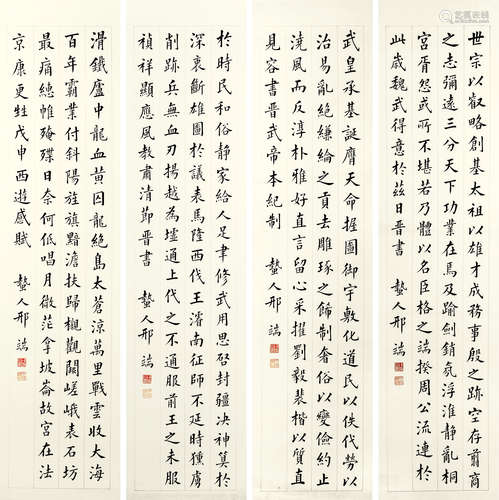 世宗以叡略創基太祖以雄才成務事殷之跡空存翦商
之志彌遠三分天下功業在焉及踰劍銷氛浮淮靜亂桐
宮胥怨或所不堪若乃體以名臣格之端揆周公流連於
此歲魏武得意於茲日晉書 蟄人邢端
武皇承基誕膺天命握圖御宇敷化道民以佚代勞以
治易亂絕縑綸之貢去雕琢之飾制奢俗以變儉約止
澆風而反淳朴雅好直言留心采擢劉毅裴楷以質直
見容書晉武帝本紀制 蟄人邢端
於時民和俗靜家給人足聿修武用思啓封疆決神算於
深衷斷雄圖於議表馬隆西伐王濬南征師不延時獯虜
削跡兵無血刃揚越為墟通上代之不通服前王之未服
禎祥顯應風教肅清節晉書 蟄人邢端
滑鐵盧中龍血黃囚龍絕島太蒼涼萬里戰雲收大海
百年霸業付斜陽旌旗黯澹扶歸櫬觀闕嵯峨表石坊
最痛繐帷殗殜日奈何低唱月微茫拿坡崙故宮在法
京康更甡戊申西遊感賦 蟄人邢端